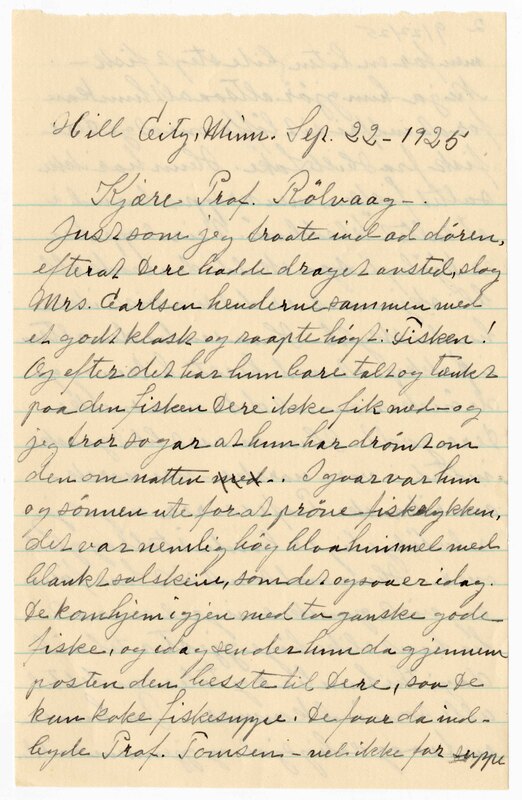 Hill City, Minn. Sep. 22 - 1925
Kjære Prof. Rölvaag -.
Just som jeg traate ind ad døren,
efterat Dere hadde draget avsted, slog
Mrs. Carlsen henderne sammen med
et godt klask og raapte høgt: Fisken!
Og efter det har hun bare talt og tænkt
paa den fisken Dere ikke fik med - og
jeg tror sogar at hun har drømt om
den om natten med.. Igaar var hun
og sønnen ute for at prøve fiskelykken,
det var nemlig høg blaa himmel med
blankt solskein, som det ogsaa er idag.
De kom hjem igjen med to ganske gode
fiske, og idag sender hun da gjennem
posten den besste til Dere, saa De
kan koke fiskesuppe. De faar da ind-
byde Prof. Tomsen - vel ikke for suppe